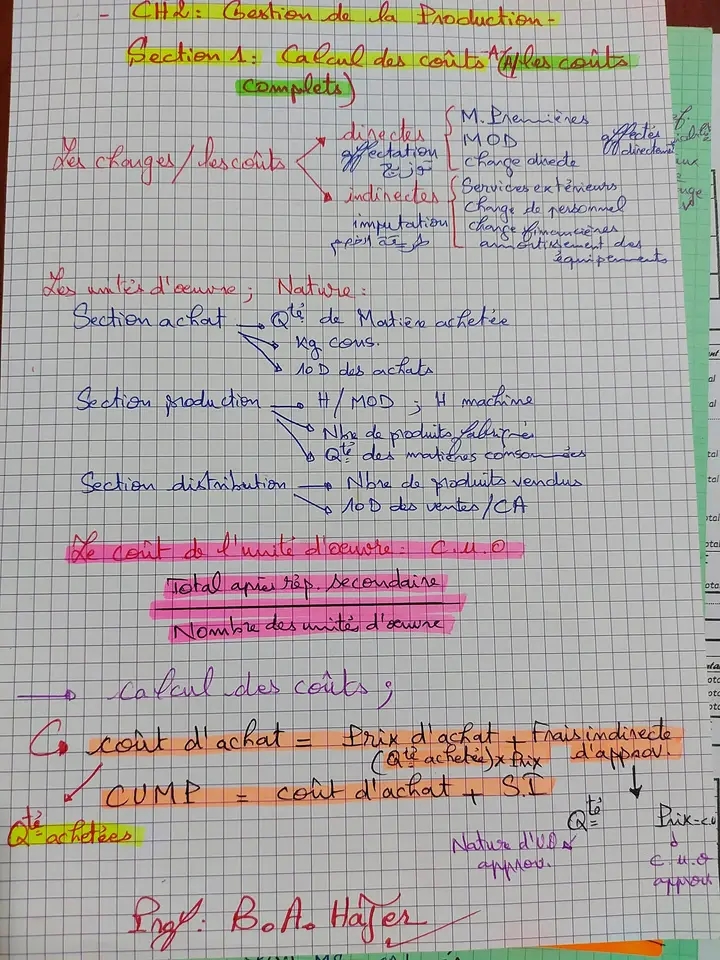 - CH2: Gestion de la Production -
Section 1: Calcul des coûts (les coûts
complets)
Les charges/les coûts
directes
affectation
توزيع
M. Premières
MOD
charge directe
affectés
directement
indirectes
imputation
Services extérieurs
charge de personnel
charge financières
amortissement des
équipements
Les unités d'oeuvre; Nature:
Section achat → Qté de Matière achetée
kg cons.
10D des achats
Section production → H/MOD ; H machine
Nbre de produits fabriqués
Qté des matières consommées
Section distribution → Nbre de produits vendus
10D des ventes/CA
Le coût de l'unité d'oeuvre: C.U.O
Total après rép. secondaire
Nombre des unités d'oeuvre
→ Calcul des coûts;
coût d'achat = Prix d'achat + Frais indirecte
(Qté achetée) x Prix d'approv.
CUMP = coût d'achat + S.I
Qté achetées
Qté
Nature d'UO
approv.
C.U.O
approv.
Prof: B.A. Hajer